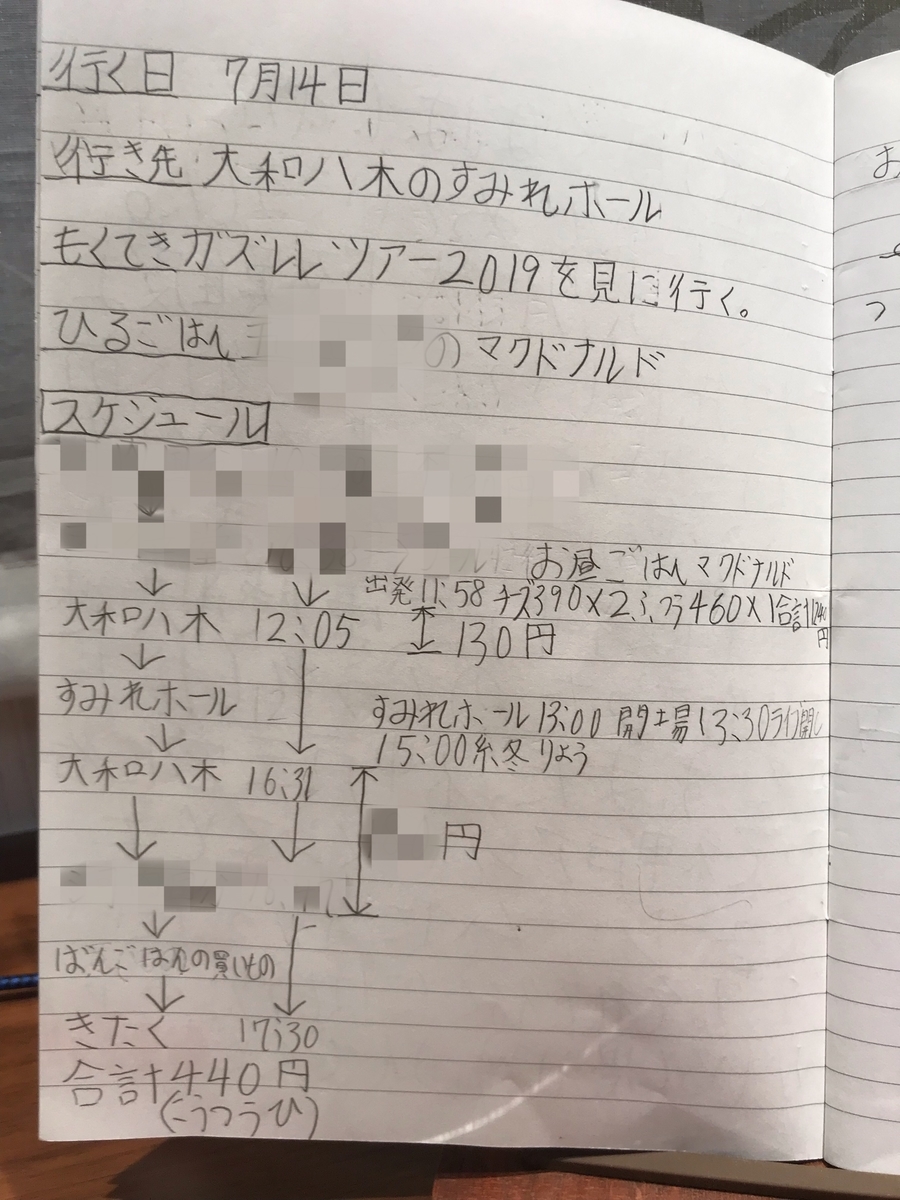 行く日 7月14日
行き先 大和八木のすみれホール
もくてきガズレレツアー2019を見に行く。
ひるごはん のマクドナルド
スケジュール
お昼ごはんマクドナルド
出発11:58 チズ390×2 460×1合計
円
大和八木 12:05 130円
すみれホール
すみれホール13:00 開場13:30ライブ開し
15:00終りょう
大和八木 16:31
円
ばんごはんの買いもの
きたく 17:30
合計440円
(こうつうひ)